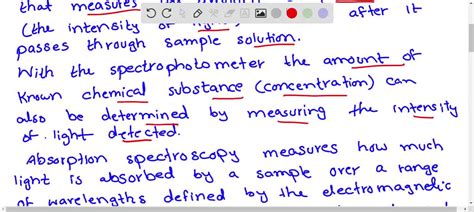 that measures
(the intensity of after it
passes through sample solution.
With the spectrophotometer the amount of
known chemical substance (concentration) can
also be determined by measuring the intensity
of light detected.
Absorption spectroscopy measures how much
light is absorbed by a sample over a range
of wavelengths defined by the electromagnetic